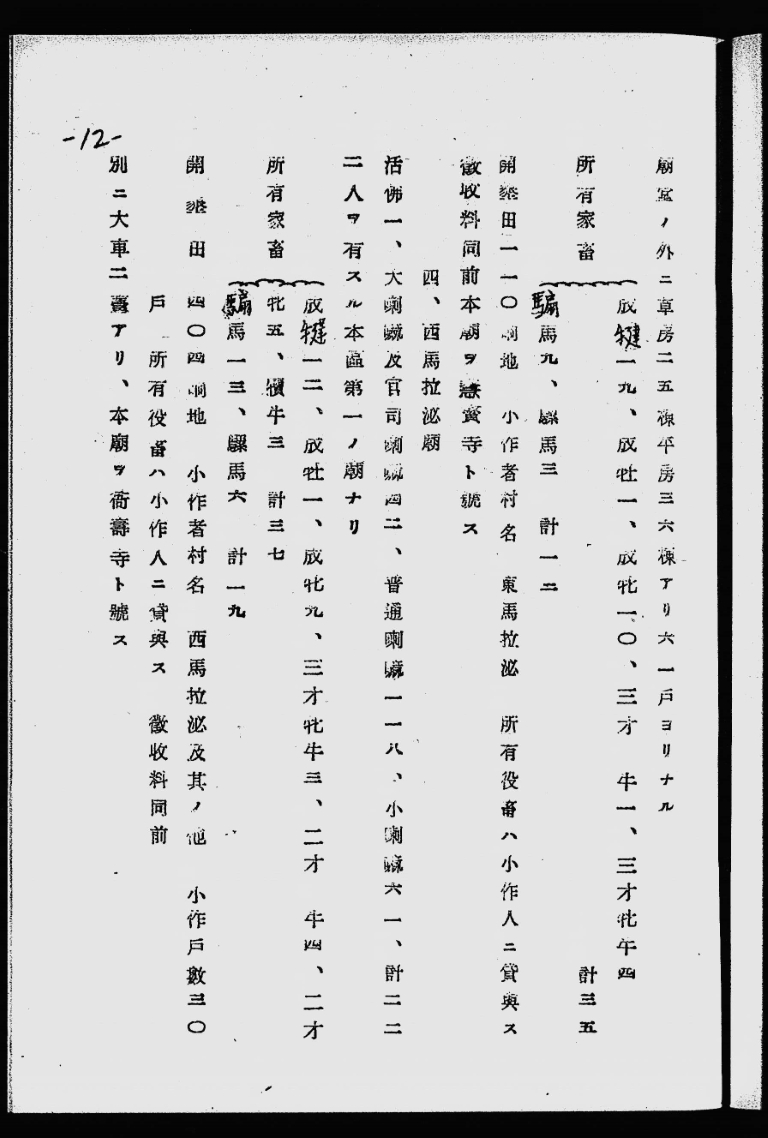 -12-
廟室ノ外ニ草房二五棟平房三六棟アリ六一戸ヨリナル
所有家畜
成犍一九、成牡一、成牝一〇、三才 牛一、三才牝午四
計三五
騸馬九、騍馬三 計一二
開墾田一一〇晌地 小作者村名 東馬拉泌 所有役畜ハ小作人ニ貸與ス
徵收料同前本廟ヲ慧資寺ト號ス
四、西馬拉泌廟
活佛一、大喇嘛及官司喇嘛四二、普通喇嘛一一八、小喇嘛六一、計二二
二人ヲ有スル本區第一ノ廟ナリ
所有家畜
成犍一二、成牡一、成牝九、三才牝牛三、二才 牛四、二才
牝五、犢牛三 計三七
騸馬一三、騍馬六 計一九
開墾田 四〇四晌地 小作者村名 西馬拉泌及其ノ他 小作戸數三〇
戸 所有役畜ハ小作人ニ貸與ス 徵收料同前
別ニ大車二 アリ、本廟ヲ 壽寺ト號ス